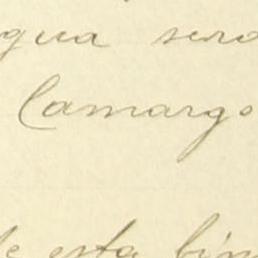 gua será
Camargo
de esta bin